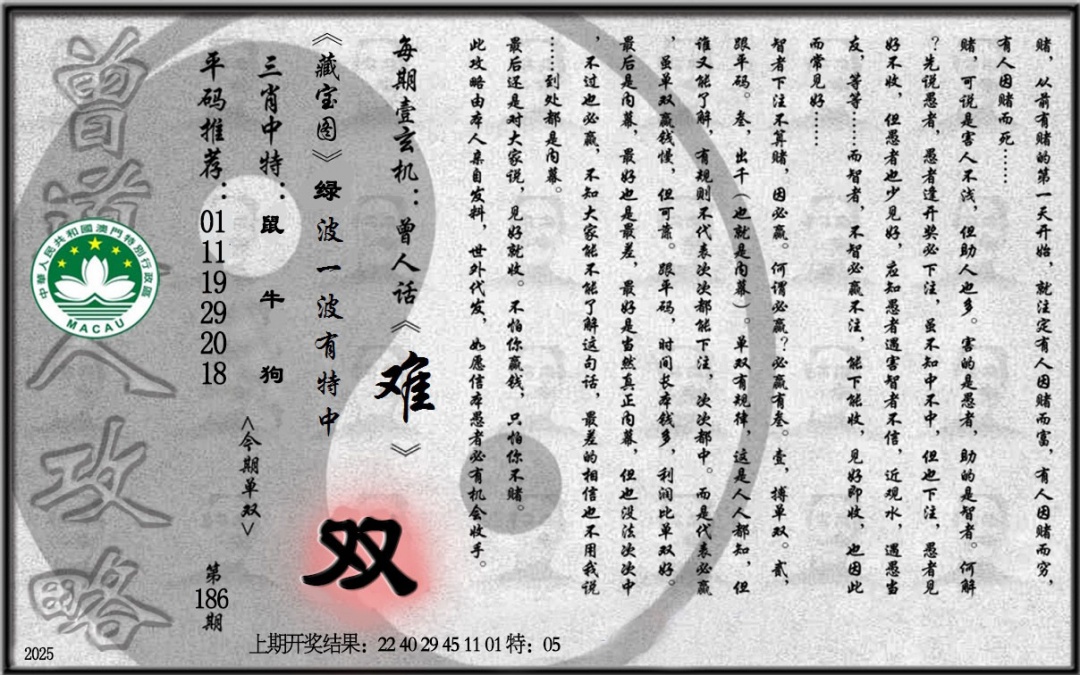 赌，从前有赌的第一天开始，就注定有人因赌而富，有人因赌而穷，
有人因赌而死……
赌，可说是害人不浅，但助人也多。害的是愚者，助的是智者。何解
？先说愚者，愚者逢开奖必下注，虽不知中不中，但也下注，愚者见
好不收，但愚者也少见好，应知愚者遇害智者不信，近观水，遇愚当
友，等等……而智者，不智必赢不注，能下能收，见好即收，也因此
而常见好……
智者下注不算赌，因必赢。何谓必赢？必赢有叁。壹，搏单双。贰，
跟平码。叁，出千（也就是内幕）。单双有规律，这是人人都知，但
谁又能了解，有规则不代表次次都能下注，次次都中。而是代表必赢
，虽单双赢钱慢，但可靠。跟平码，时间长本钱多，利润比单双好。
最后是内幕，最好也是最差，最好是当然真正内幕，但也没法次次中
，不过也必赢，不知大家能不能了解这句话，最差的相信也不用我说
……到处都是内幕。
最后还是对大家说，见好就收。不怕你赢钱，只怕你不赌。
此攻略由本人亲自发料，世外代发，如愿信本愚者必有机会收手。
每期壹玄机：曾人话《难》
《藏宝图》绿波一波有特中
三肖中特：鼠 牛 狗
平码推荐：01 11 19 29 20 18
<今期单双>
双
第186期
上期开奖结果：22 40 29 45 11 01 特：05
曾道人攻略
中華人民共和國澳門特別行政區
MACAU
2025